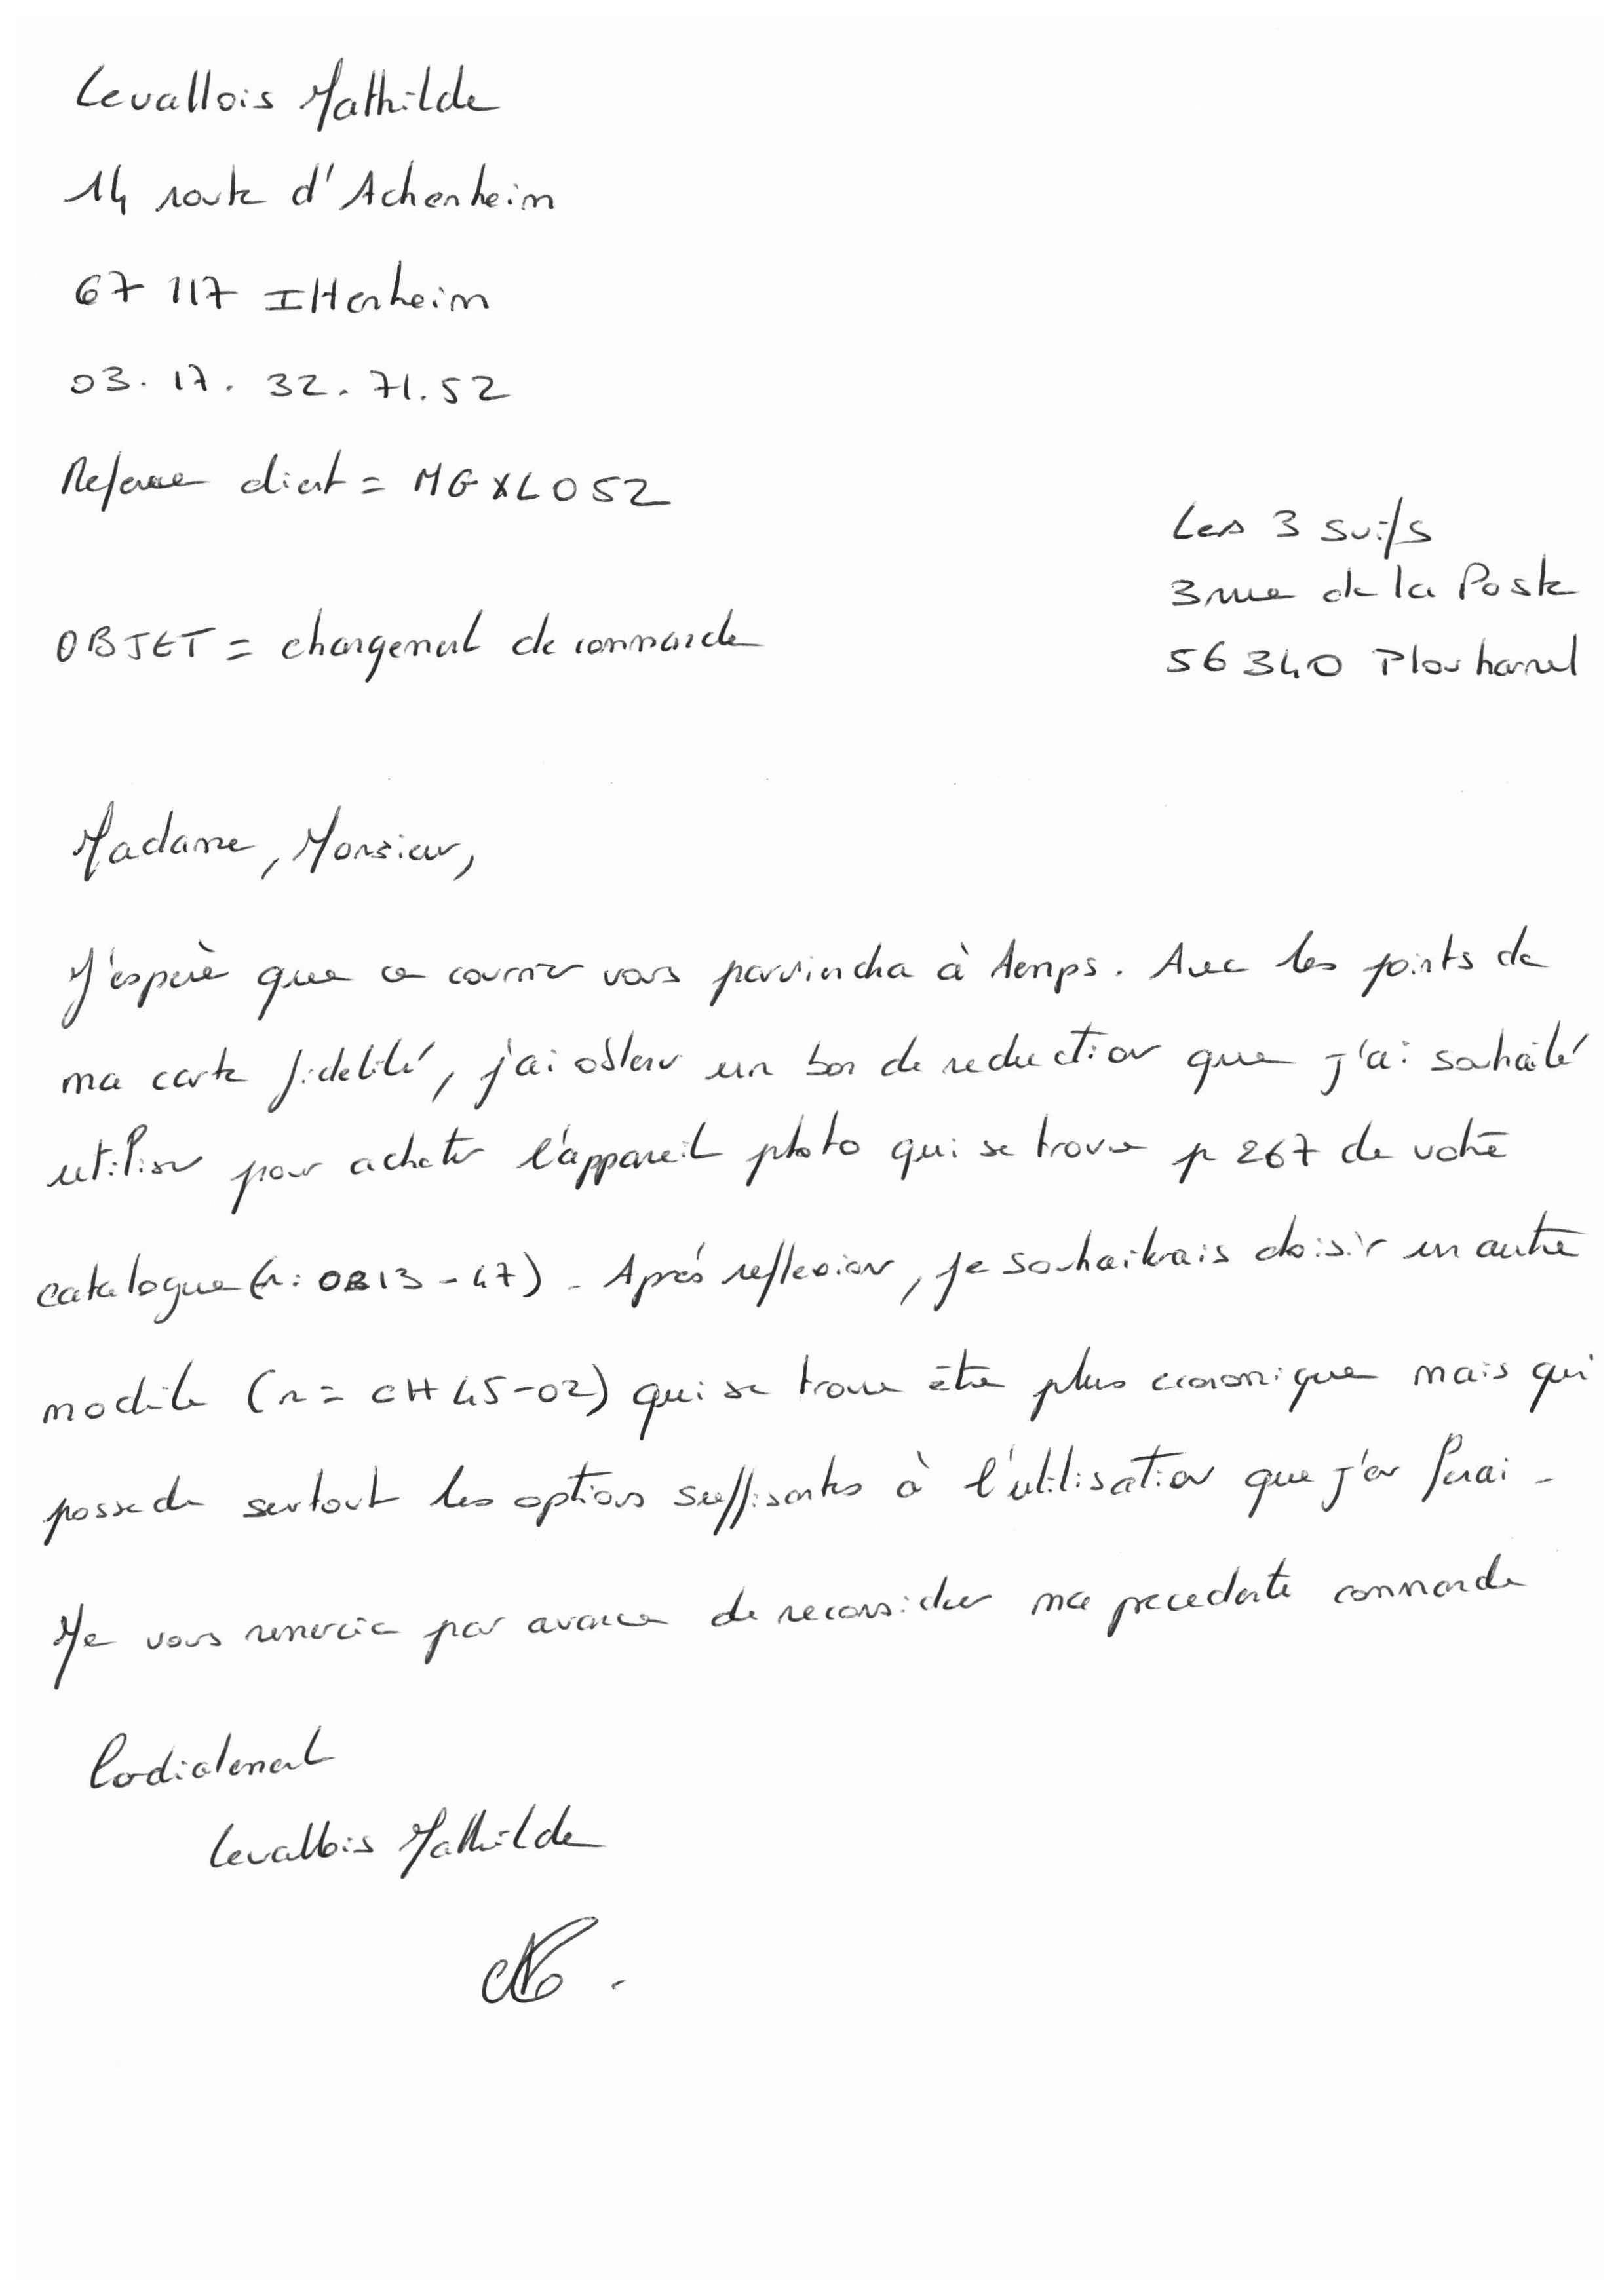 Levallois Mathilde
14 route d'Achenheim
67 117 Ittenheim
03. 17. 32. 71. 52
Reference client = MGXLO52
Les 3 suifs
3 rue de la Poste
56 340 Plouharnel
OBJET = changement de commande
Madame, Monsieur,
J'espère que ce courrier vous parviendra à temps. Avec les points de
ma carte fidelité, j'ai obtenu un bon de reduction que j'ai souhaité
utiliser pour acheter l'appareil photo qui se trouve p 267 de votre
catalogue (n: OB13-47). Après reflexion, je souhaiterais choisir un autre
modèle (n = CH45-02) qui se trouve être plus economique mais qui
possede surtout les options suffisantes à l'utilisation que j'en ferai.
Je vous remercie par avance de reconsiderer ma precedente commande
Cordialement
Levallois Mathilde